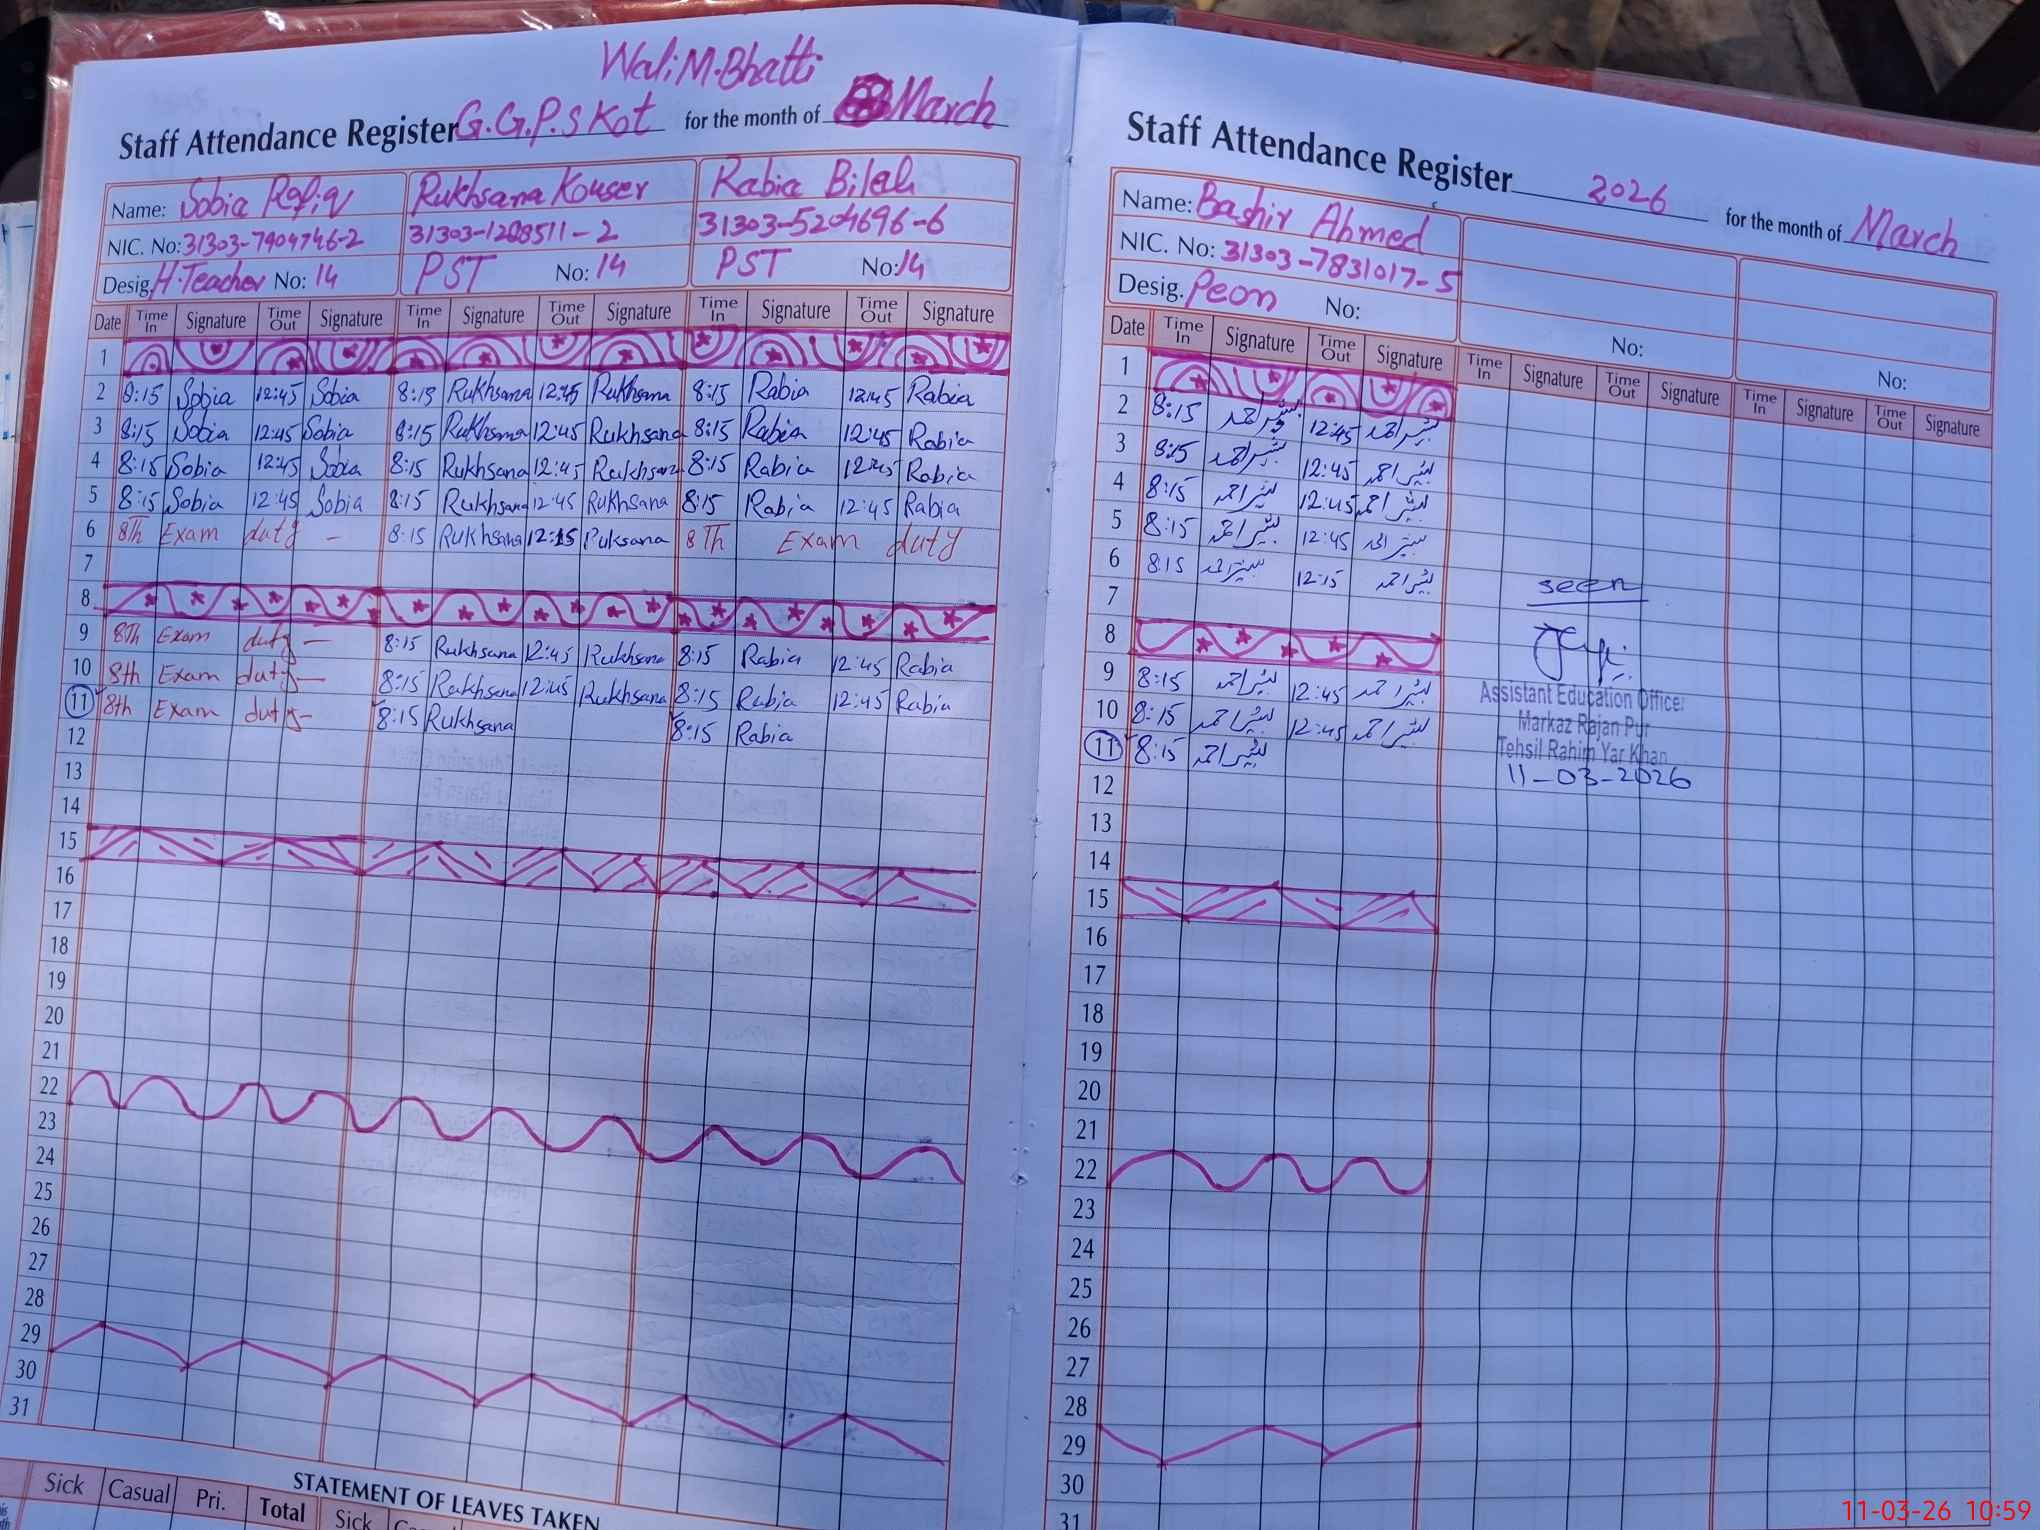 Wali M. Bhatti
Staff Attendance Register G.G.P.S Kot for the month of March
Name: Sobia Rafiq Rukhsana Kouser Rabia Bilal
NIC. No: 31303-7904746-2 31303-1208511-2 31303-5204696-6
Desig. H.Teacher No: 14 PST No: 14 PST No: 14
Date Time In Signature Time Out Signature Time In Signature Time Out Signature Time In Signature Time Out Signature
1
2 8:15 Sobia 12:45 Sobia 8:15 Rukhsana 12:45 Rukhsana 8:15 Rabia 12:45 Rabia
3 8:15 Sobia 12:45 Sobia 8:15 Rukhsana 12:45 Rukhsana 8:15 Rabia 12:45 Rabia
4 8:15 Sobia 12:45 Sobia 8:15 Rukhsana 12:45 Rukhsana 8:15 Rabia 12:45 Rabia
5 8:15 Sobia 12:45 Sobia 8:15 Rukhsana 12:45 Rukhsana 8:15 Rabia 12:45 Rabia
6 8Th Exam duty - 8:15 Rukhsana 12:15 Puksana 8Th Exam duty
7
8
9 8Th Exam duty - 8:15 Rukhsana 12:45 Rukhsana 8:15 Rabia 12:45 Rabia
10 8th Exam duty - 8:15 Rukhsana 12:45 Rukhsana 8:15 Rabia 12:45 Rabia
11 8th Exam duty - 8:15 Rukhsana 8:15 Rabia
12
13
14
15
16
17
18
19
20
21
22
23
24
25
26
27
28
29
30
31
STATEMENT OF LEAVES TAKEN
Sick Casual Pri. Total Sick
Staff Attendance Register 2026 for the month of March
Name: Bashir Ahmed
NIC. No: 31303-7831017-5
Desig. Peon No: No: No:
Date Time In Signature Time Out Signature Time In Signature Time Out Signature Time In Signature Time Out Signature
1
2 8:15 بشیر احمد 12:45 بشیر احمد
3 8:15 بشیر احمد 12:45 بشیر احمد
4 8:15 بشیر احمد 12:45 بشیر احمد
5 8:15 بشیر احمد 12:45 بشیر احمد
6 8:15 بشیر احمد 12:15 بشیر احمد
7
8
9 8:15 بشیر احمد 12:45 بشیر احمد
10 8:15 بشیر احمد 12:45 بشیر احمد
11 8:15 بشیر احمد
12
13
14
15
16
17
18
19
20
21
22
23
24
25
26
27
28
29
30
31
seen
Assistant Education Officer
Markaz Rajan Pur
Tehsil Rahim Yar Khan
11-03-2026
11-03-26 10:59